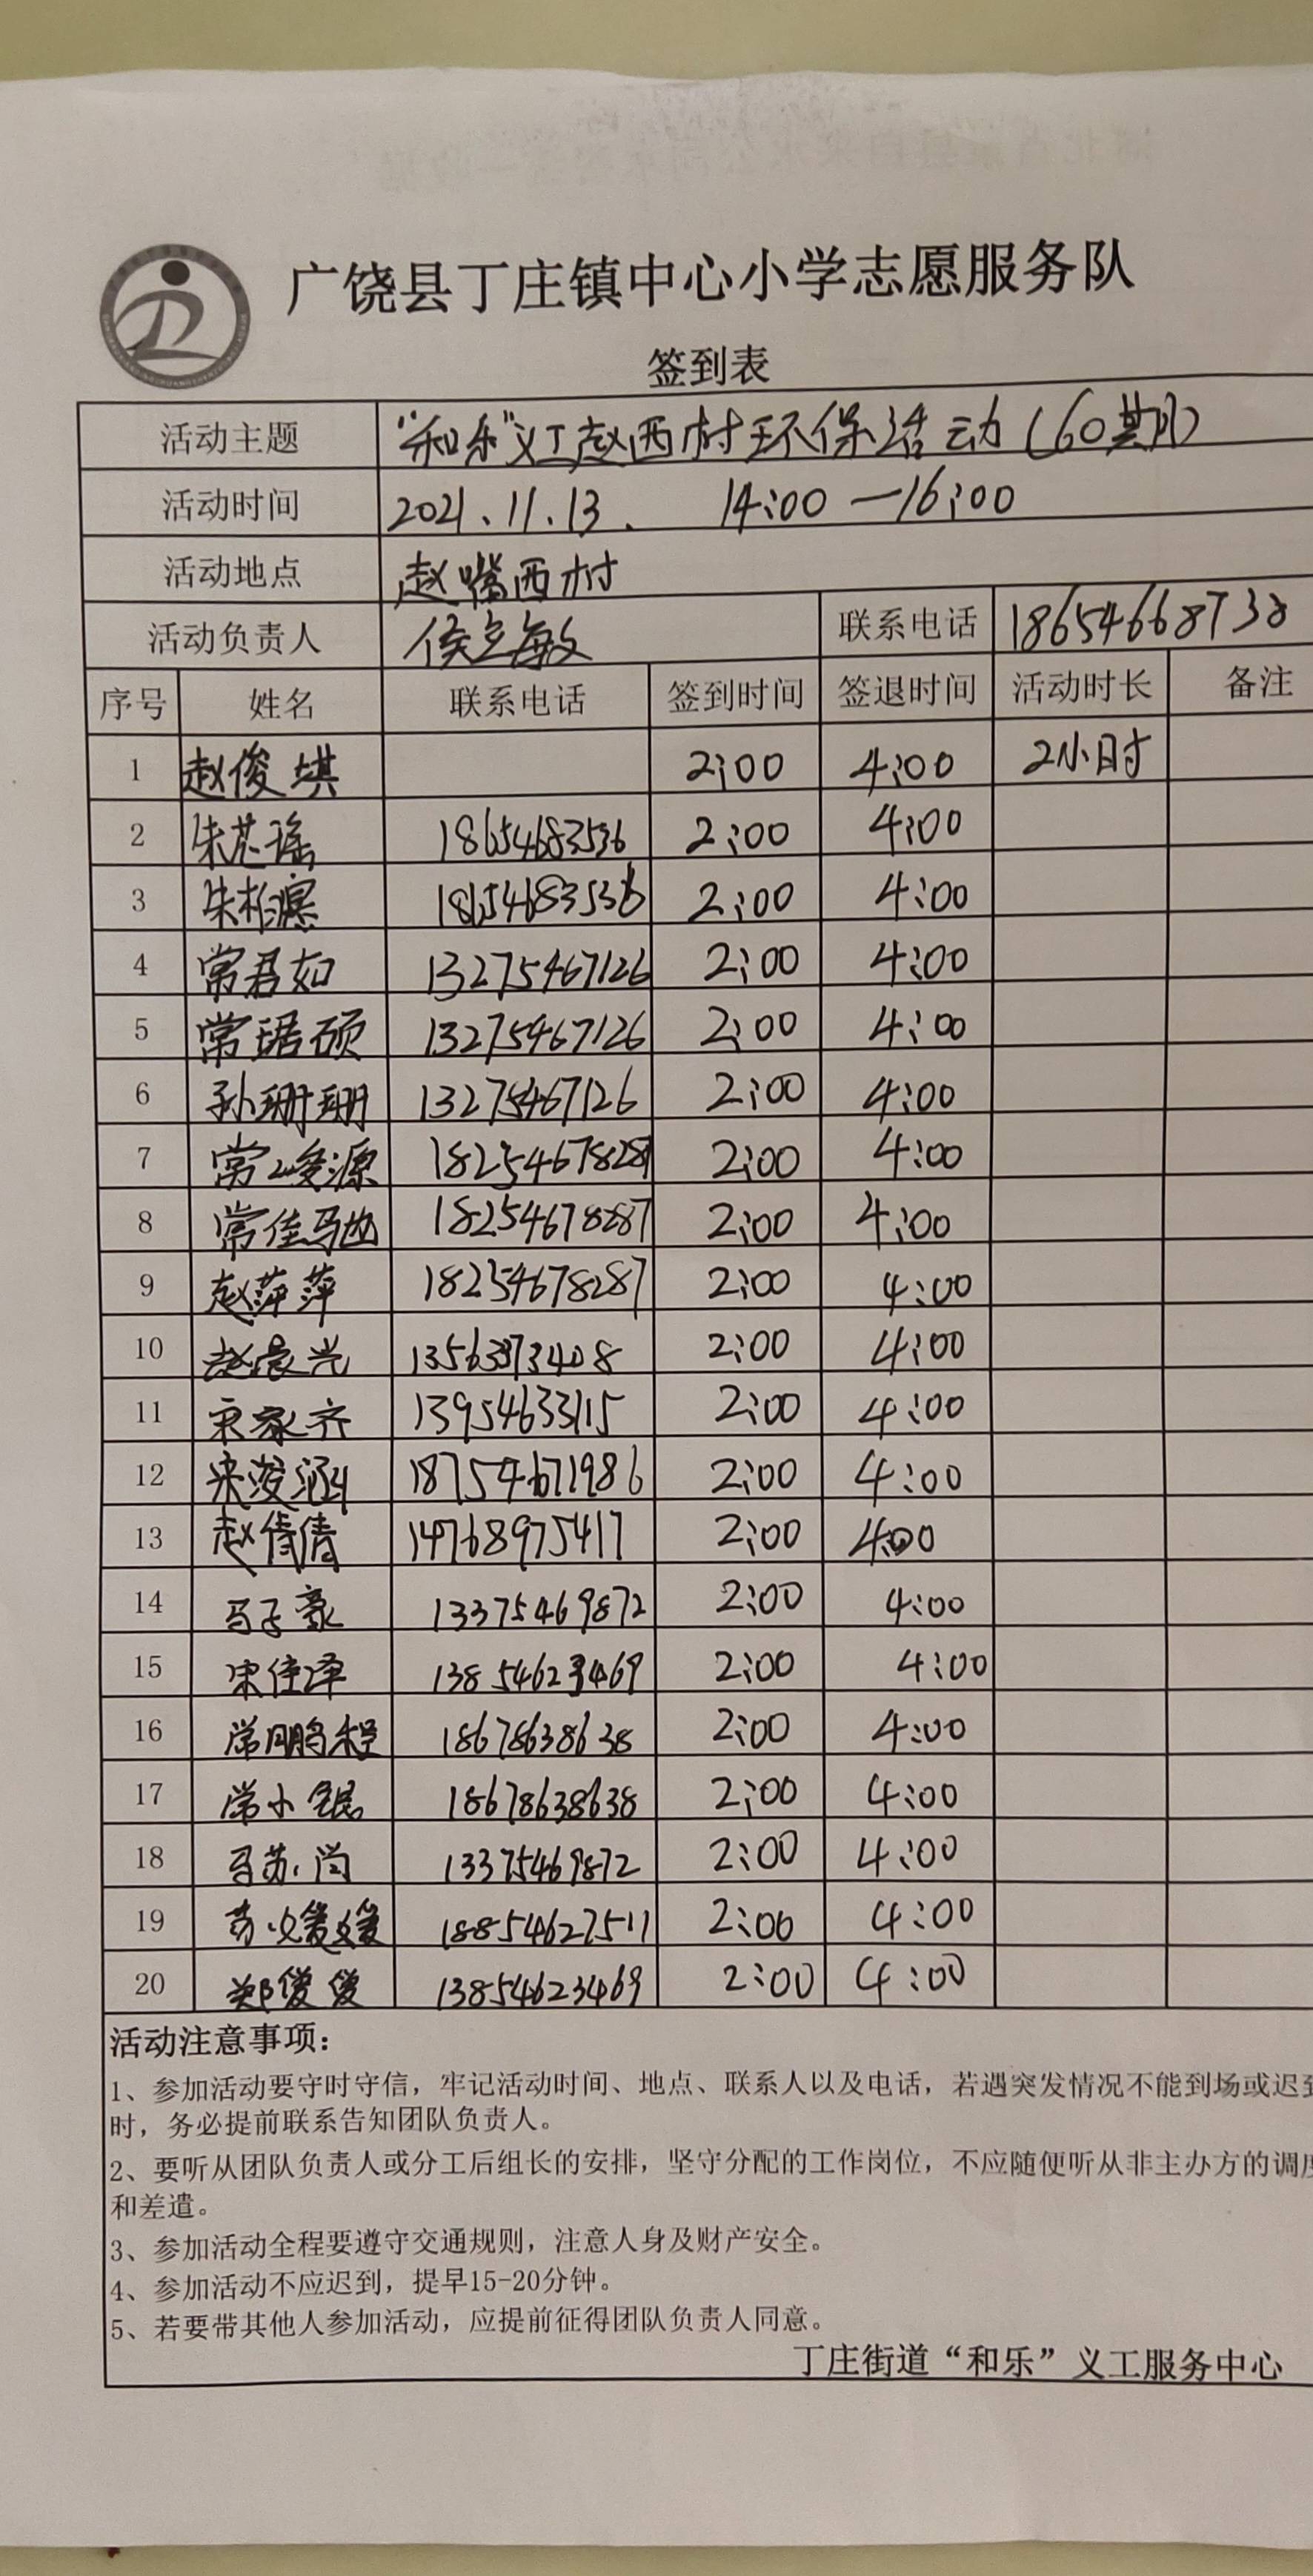 广饶县丁庄镇中心小学志愿服务队
签到表
活动主题 "和乐"义工赵西村环保活动(60期)
活动时间 2021.11.13. 14:00—16:00
活动地点 赵嘴西村
活动负责人 侯立敏 联系电话 18654668738
序号 姓名 联系电话 签到时间 签退时间 活动时长 备注
1 赵俊琪 2:00 4:00 2小时
2 朱芯瑶 18654683536 2:00 4:00
3 朱柏 18654683536 2:00 4:00
4 常君如 13275467126 2:00 4:00
5 常琚硕 13275467126 2:00 4:00
6 孙珊珊 13275467126 2:00 4:00
7 常峻源 18254678287 2:00 4:00
8 常佳驰 18254678287 2:00 4:00
9 赵萍萍 18254678287 2:00 4:00
10 赵晨光 13563373408 2:00 4:00
11 宋家齐 13954633115 2:00 4:00
12 宋浚涵 18754671986 2:00 4:00
13 赵倩倩 14768975417 2:00 4:00
14 马子豪 13375469872 2:00 4:00
15 宋佳泽 13854623469 2:00 4:00
16 常鹏程 18678638638 2:00 4:00
17 常小锟 18678638638 2:00 4:00
18 马苏尚 13375469872 2:00 4:00
19 苏媛媛 18854627511 2:00 4:00
20 郑俊俊 13854623469 2:00 4:00
活动注意事项:
1、参加活动要守时守信，牢记活动时间、地点、联系人以及电话，若遇突发情况不能到场或迟到
时，务必提前联系告知团队负责人。
2、要听从团队负责人或分工后组长的安排，坚守分配的工作岗位，不应随便听从非主办方的调度
和差遣。
3、参加活动全程要遵守交通规则，注意人身及财产安全。
4、参加活动不应迟到，提早15-20分钟。
5、若要带其他人参加活动，应提前征得团队负责人同意。
丁庄街道“和乐”义工服务中心